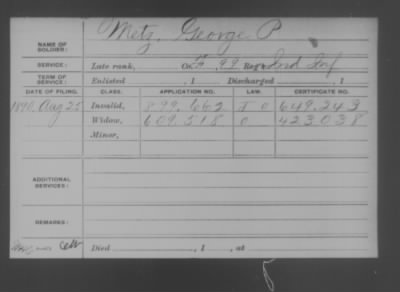 Metz, George P
NAME OF SOLDIER:
SERVICE: Late rank, Co. F, 99 Reg't Ind Inf
TERM OF SERVICE: Enlisted , 1 Discharged , 1
DATE OF FILING. CLASS. APPLICATION NO. LAW. CERTIFICATE NO.
1890, Aug 25 Invalid, 899.662 J O 649.243
Widow, 609.518 O 423038
Minor,
ADDITIONAL SERVICES:
REMARKS:
Died , 1 , at